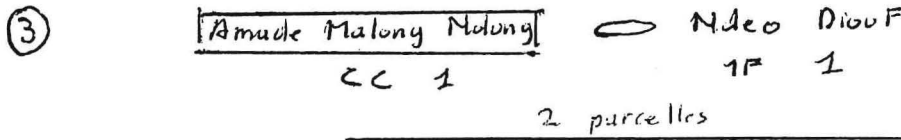 3 Amude Malong Malong Ndeo Diouf
CC 1 1F 1
2 parcelles